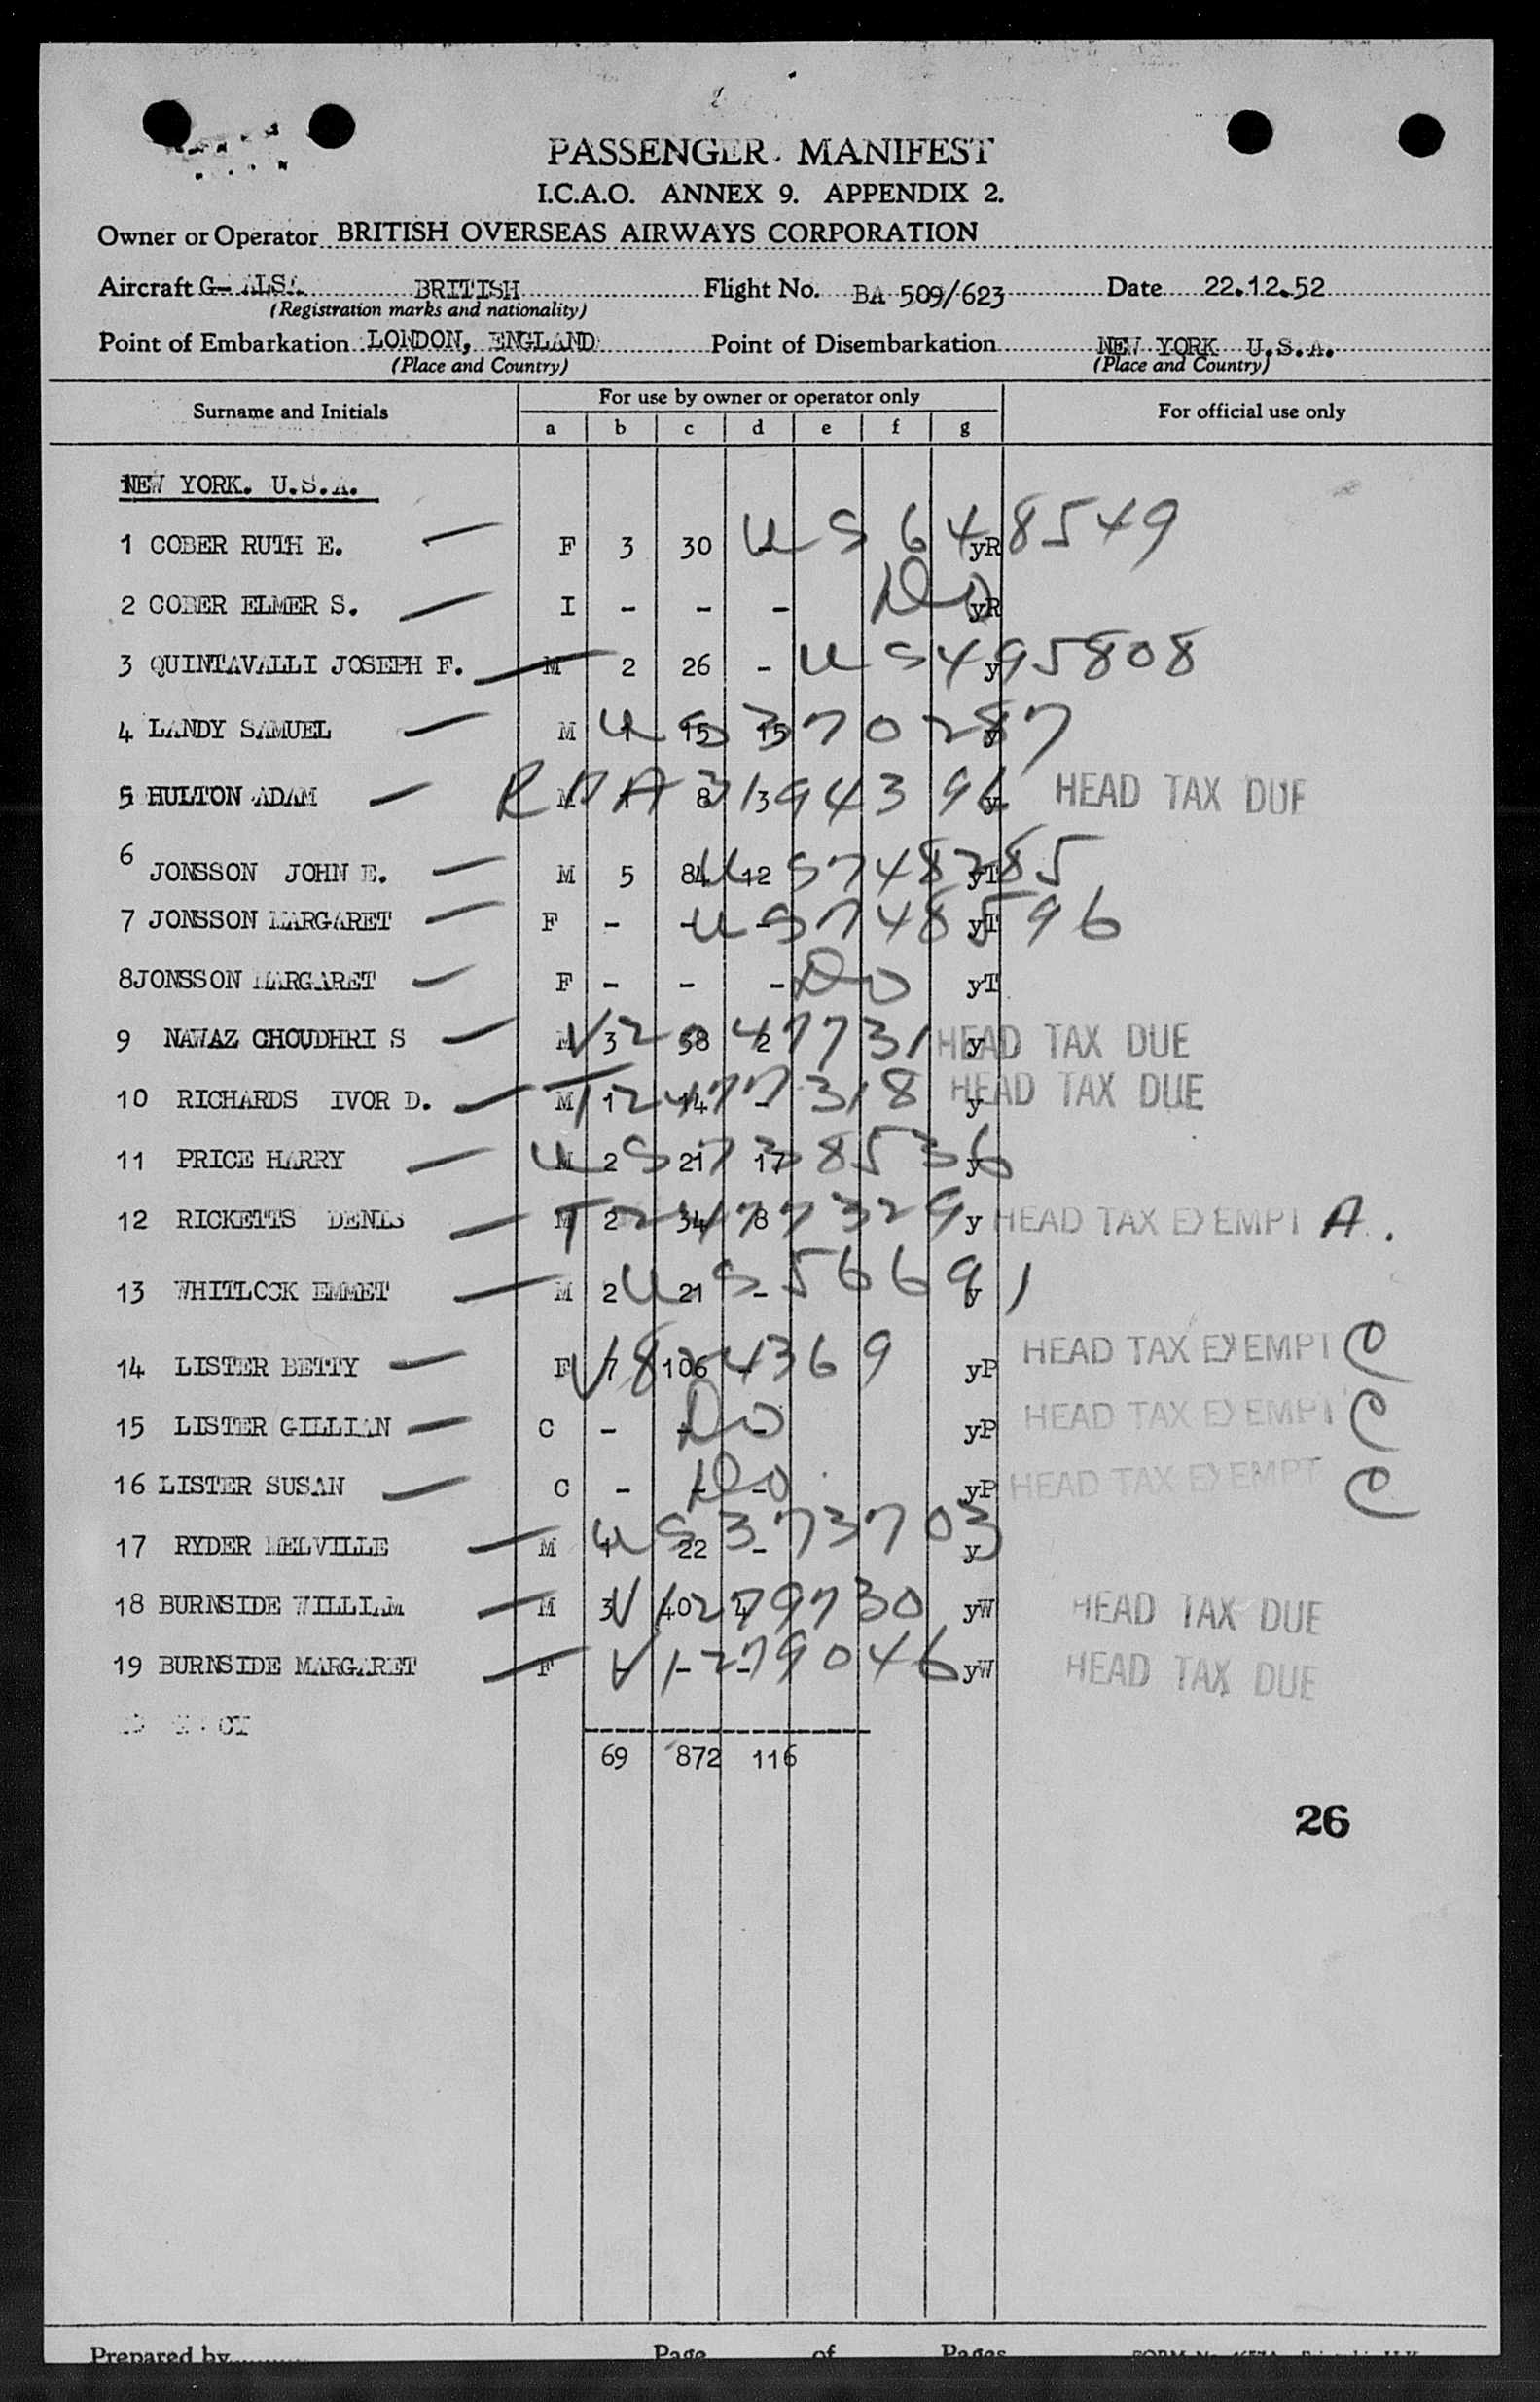 PASSENGER MANIFEST
I.C.A.O. ANNEX 9. APPENDIX 2.
Owner or Operator BRITISH OVERSEAS AIRWAYS CORPORATION
Aircraft G- ALSA BRITISH Flight No. BA 509/623 Date 22.12.52
(Registration marks and nationality)
Point of Embarkation LONDON, ENGLAND Point of Disembarkation NEW YORK U.S.A.
(Place and Country) (Place and Country)
Surname and Initials For use by owner or operator only For official use only
a b c d e f g
NEW YORK. U.S.A.
1 COBER RUTH E. — F 3 30 - yR US 648549
2 COBER ELMER S. — I - - - yR Do
3 QUINTAVALLI JOSEPH F. — M 2 26 - y US495808
4 LANDY SAMUEL — M 1 15 15 y US370287
5 HULTON ADAM — M 8 13 y HEAD TAX DUE
6 JONSSON JOHN E. — M 5 84 12 yT US748285
7 JONSSON MARGARET — F - - - yT US748596
8 JONSSON MARGARET — F - - - yT Do
9 NAWAZ CHOUDHRI S — M 3 58 2 y HEAD TAX DUE
10 RICHARDS IVOR D. — M 1 14 - y T2477318 HEAD TAX DUE
11 PRICE HARRY — M 2 21 17 y US738536
12 RICKETTS DENIS — M 2 34 8 y T2477329 HEAD TAX EXEMPT A.
13 WHITLOCK EMMET — M 2 21 - y US566691
14 LISTER BETTY — F 7 106 - yP HEAD TAX EXEMPT C
15 LISTER GILLIAN — C - - - yP Do HEAD TAX EXEMPT C
16 LISTER SUSAN — C - - - yP Do HEAD TAX EXEMPT C
17 RYDER MELVILLE — M 1 22 - y US373703
18 BURNSIDE WILLIAM — M 3 40 4 yW HEAD TAX DUE
19 BURNSIDE MARGARET — F - - - yW HEAD TAX DUE
69 872 116
26
Prepared by Page of Pages